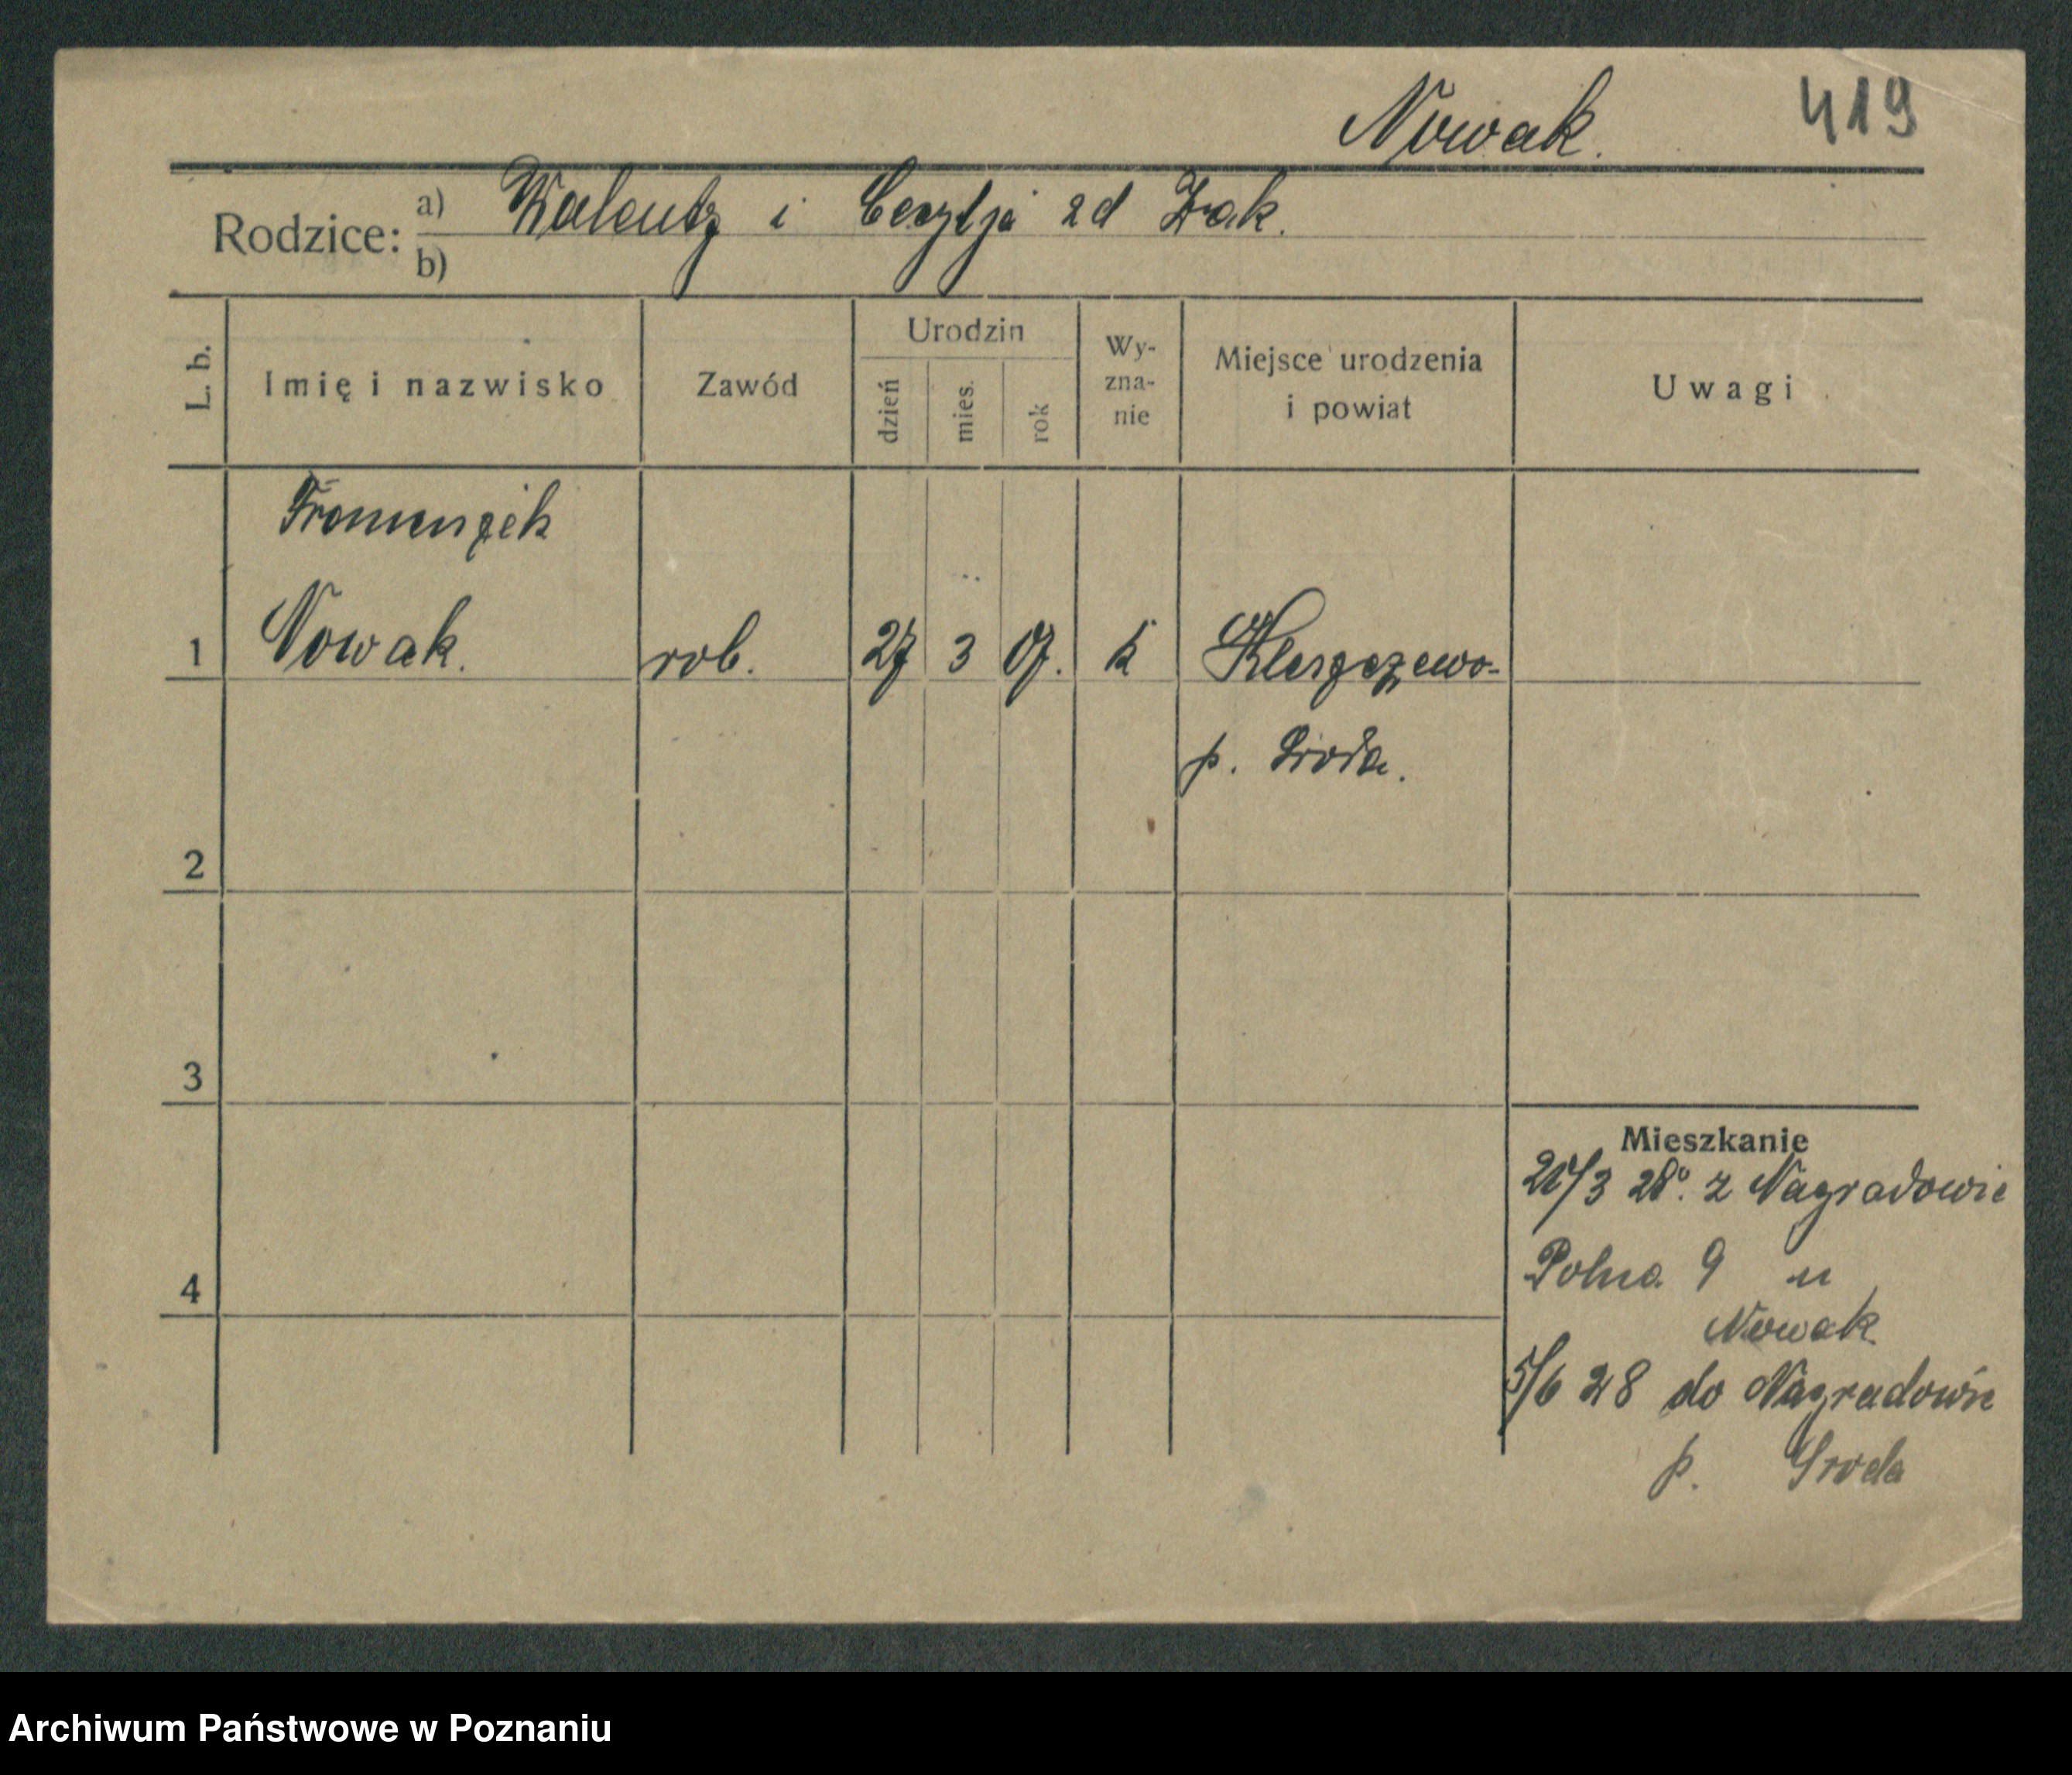 Nowak. 419
Rodzice: a) Walenty i Cecylja zd Żak.
b)
L. b. Imię i nazwisko Zawód Urodzin dzień mies. rok Wy-zna-nie Miejsce urodzenia i powiat Uwagi
Franciszek
1 Nowak. rob. 27 3 07. k Kleszczewo-
p. Środa.
2
3
Mieszkanie
3 28. z Nagradowic
Polna 9 u
4
Nowak
5/6 28 do Nagradowic
p. Sroda
Archiwum Państwowe w Poznaniu